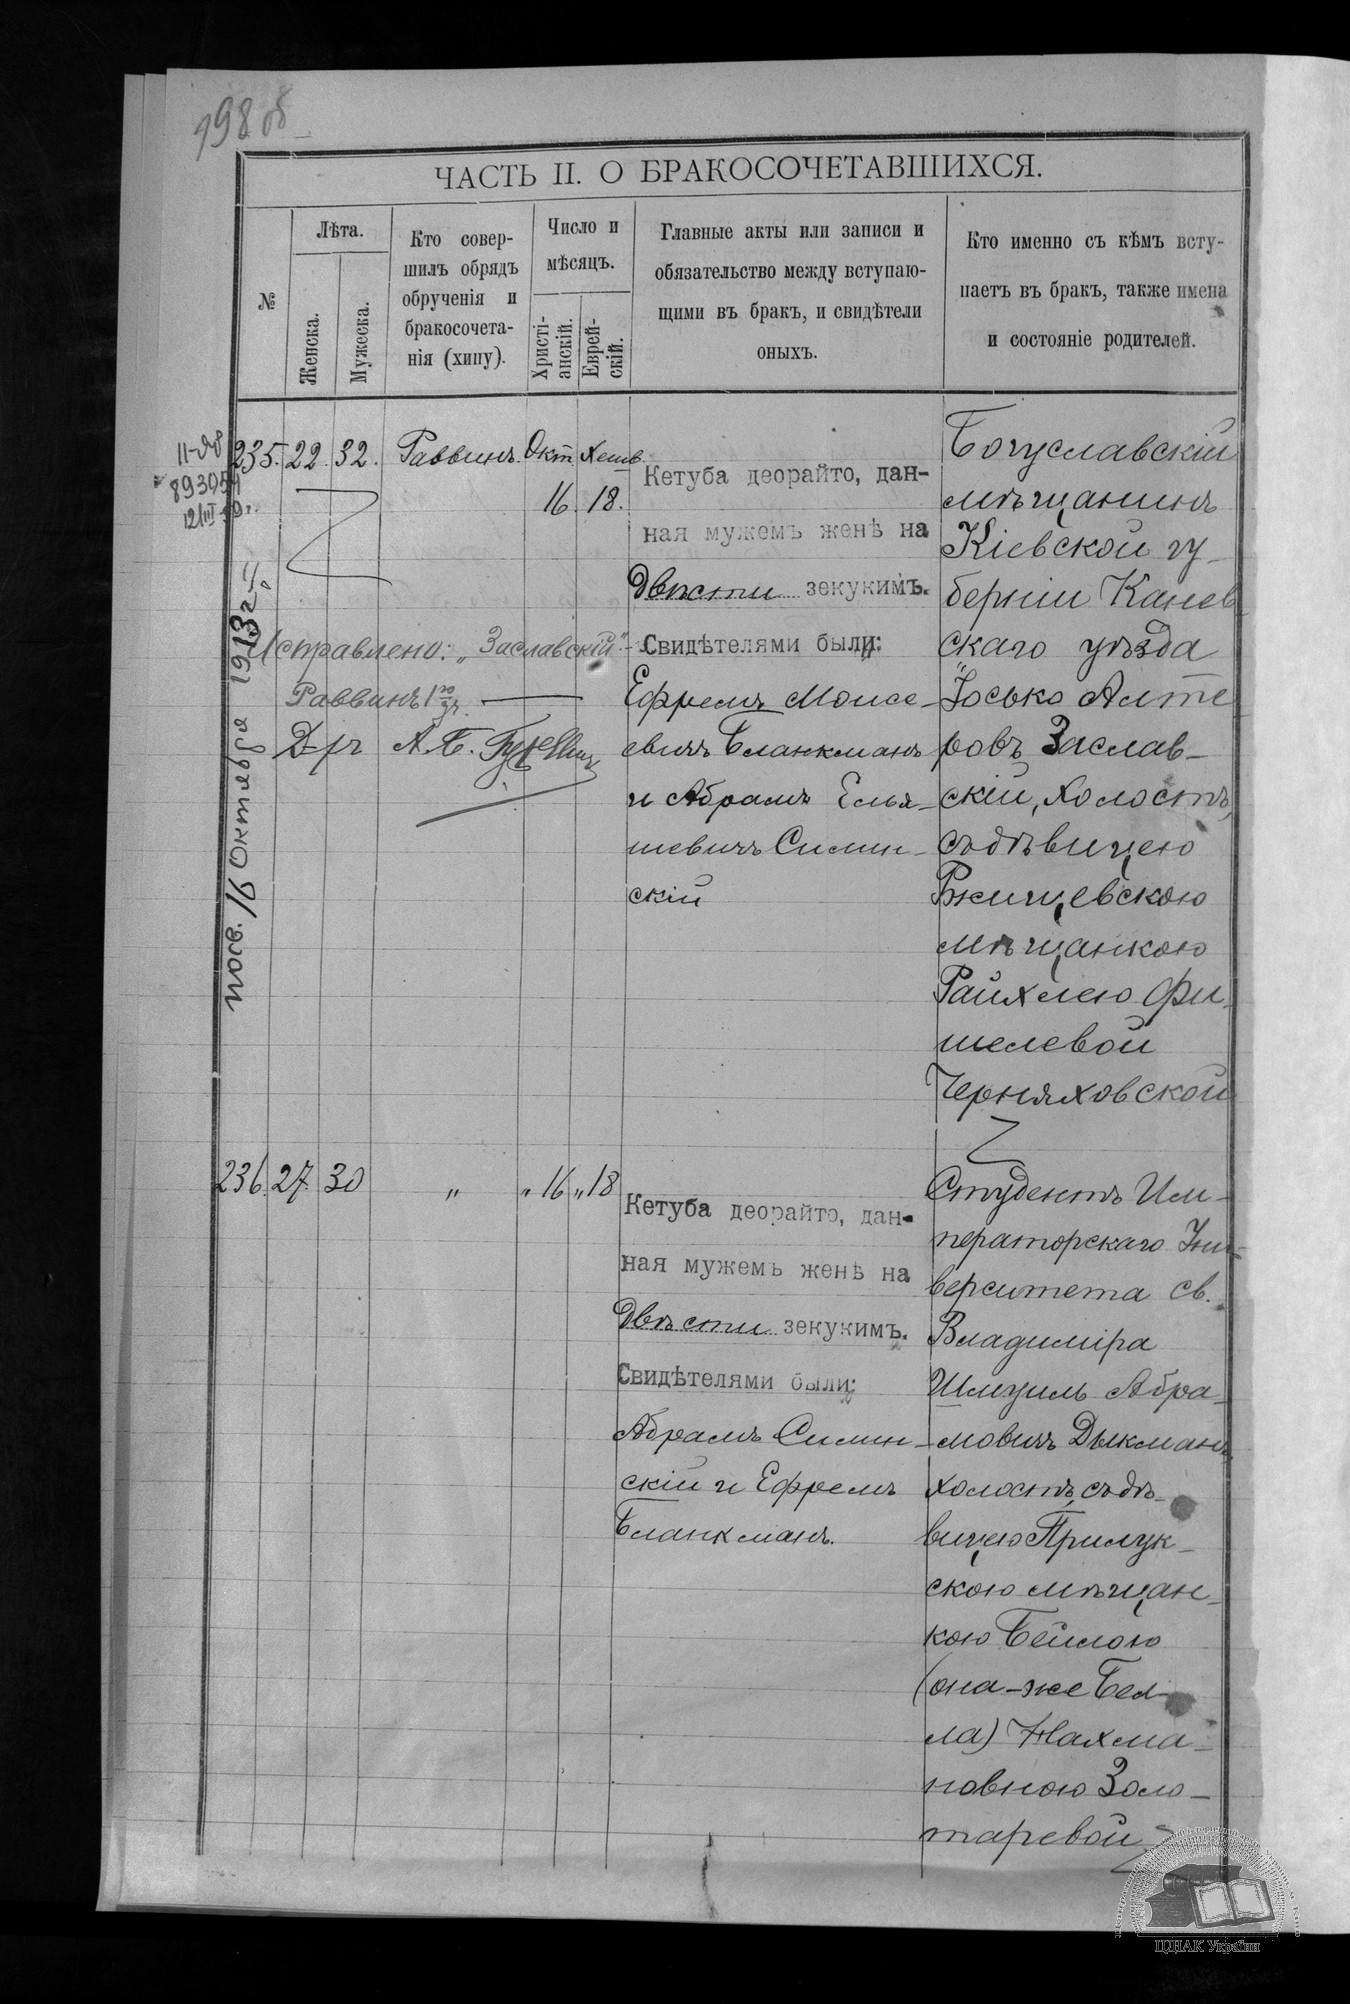 198 об
ЧАСТЬ II. О БРАКОСОЧЕТАВШИХСЯ.
№
Лѣта.
Женска.
Мужеска.
Кто совер-
шилъ обрядъ
обрученія и
бракосочета-
нія (хипу).
Число и
мѣсяцъ.
Христі-
анскій.
Еврей-
скій.
Главные акты или записи и
обязательство между вступаю-
щими въ бракъ, и свидѣтели
оныхъ.
Кто именно съ кѣмъ всту-
паетъ въ бракъ, также имена
и состояніе родителей.
235. 22. 32. Раввинъ. Окт. Хешв.
16. 18.
Кетуба деорайто, дан-
ная мужемъ женѣ на
Двѣсти зекукимъ.
Свидѣтелями были:
Ефремъ Моисе-
евичъ Бланкманъ
и Абрамъ Елья-
шевичъ Симин-
скій
Богуславскій
мѣщанинъ
Кіевской гу-
берніи Канев
скаго уѣзда
Іосько Алте
ровъ Заслав-
скій, холостъ,
съ дѣвицею
Ржищевскою
мѣщанкою
Райхлею Фи-
шелевой
Черняховской
II-ЯВ
Исправлено: „Заславскій"
Раввинъ
Д-ръ А. Б. Гуревич
16 Октября 1913 г.
236. 27. 30 „ „ 16 „ 18
Кетуба деорайто, дан-
ная мужемъ женѣ на
Двѣсти зекукимъ.
Свидѣтелями были:
Абрамъ Симин-
скій и Ефремъ
Бланкманъ.
Студентъ Им-
ператорскаго Уни-
верситета св.
Владиміра
Шмуиль Абра-
мовичъ Дыкманъ,
холостъ, съ дѣ-
вицею Прилук-
скою мѣщан-
кою Бейлою
(она-же Бел-
ла) Нахма-
новною Золо-
таревой
ЦДІАК України